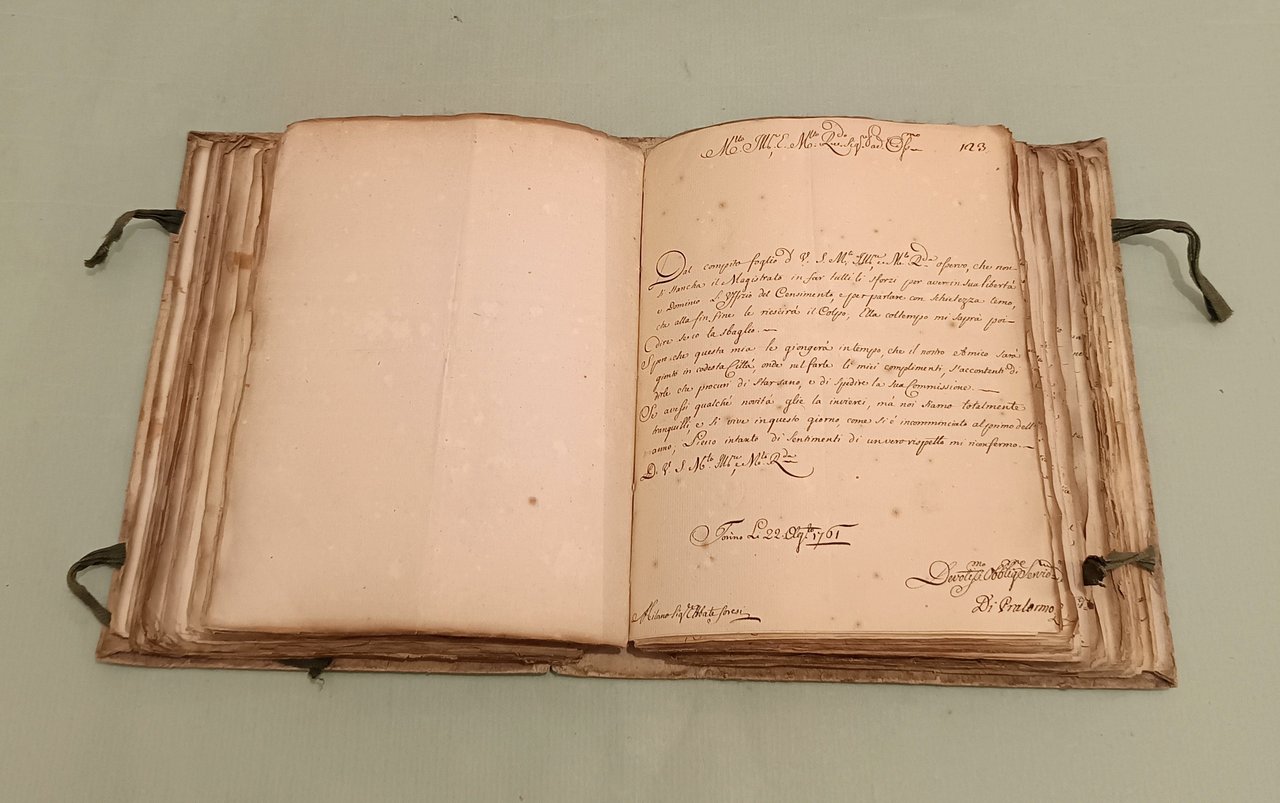 M.to Ill.e, e M.to R.do Sig.r Sig.r Pad.
123
Dal compito foglio di V. S. M.to Ill.re, e M.to R.da osservo, che non
si stancha il Magistrato in far tutti li sforzi per avere in sua libertà
e Dominio l'Uffizio del Censimento, e per parlare con schietezza temo,
che alla fin fine le riescirà il Colpo, Ella col tempo mi saprà poi
dire se io la sbaglio.
Spero che questa mia le giongerà in tempo, che il nostro Amico sarà
gionto in codesta Città, onde nel farle li miei complimenti, s'accontenti di
dirle che procuri di star sano, e di spedire la sua Commissione.
Se avessi qualche novità glie la invierei, mà noi siamo totalmente
tranquilli, e si vive in questo giorno come si è incomminciato al primo dell'
anno, Pieno intanto di sentimenti di un vero rispetto mi riconfermo
Di V. S. M.to Ill.re, e M.to R.da
Torino Li 22 Ag.to 1761
Devotis.mo Obblig.mo Servid.re
Di Pralormo
Milano Sig.r Abate Soresi